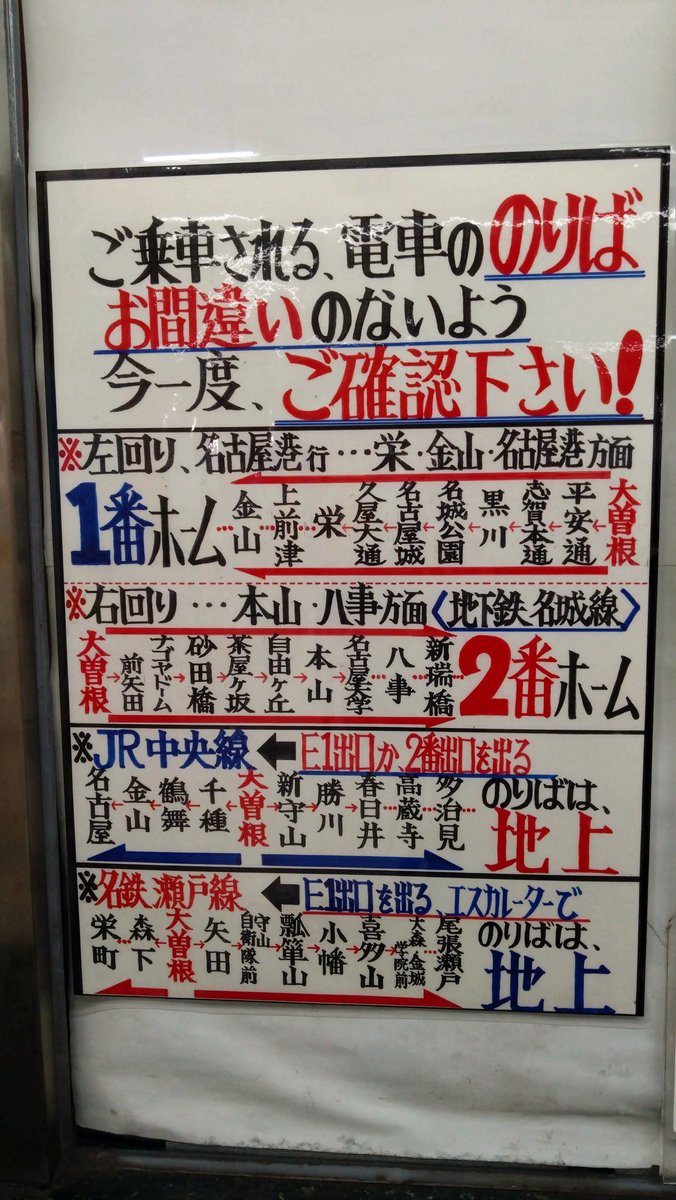 ご乗車される、電車ののりば
お間違いのないよう
今一度、ご確認下さい!
※左回り、名古屋港行…栄・金山・名古屋港方面
1番ホーム
金山 上前津 栄 久屋大通 名古屋城 名城公園 黒川 志賀本通 平安通 大曽根
※右回り…本山・八事方面〈地下鉄、名城線〉
大曽根 ナゴヤドーム前矢田 砂田橋 茶屋ヶ坂 自由ヶ丘 本山 名古屋大学 八事 新瑞橋
2番ホーム
※JR中央線 E1出口か、2番出口を出る
名古屋 金山 鶴舞 千種 大曽根 新守山 勝川 春日井 高蔵寺 多治見
のりばは、
地上
※名鉄瀬戸線 E1出口を出る、エスカレーターで
栄町 森下 大曽根 矢田 守山自衛隊前 瓢箪山 小幡 喜多山 大森・金城学院前 尾張瀬戸
のりばは、
地上